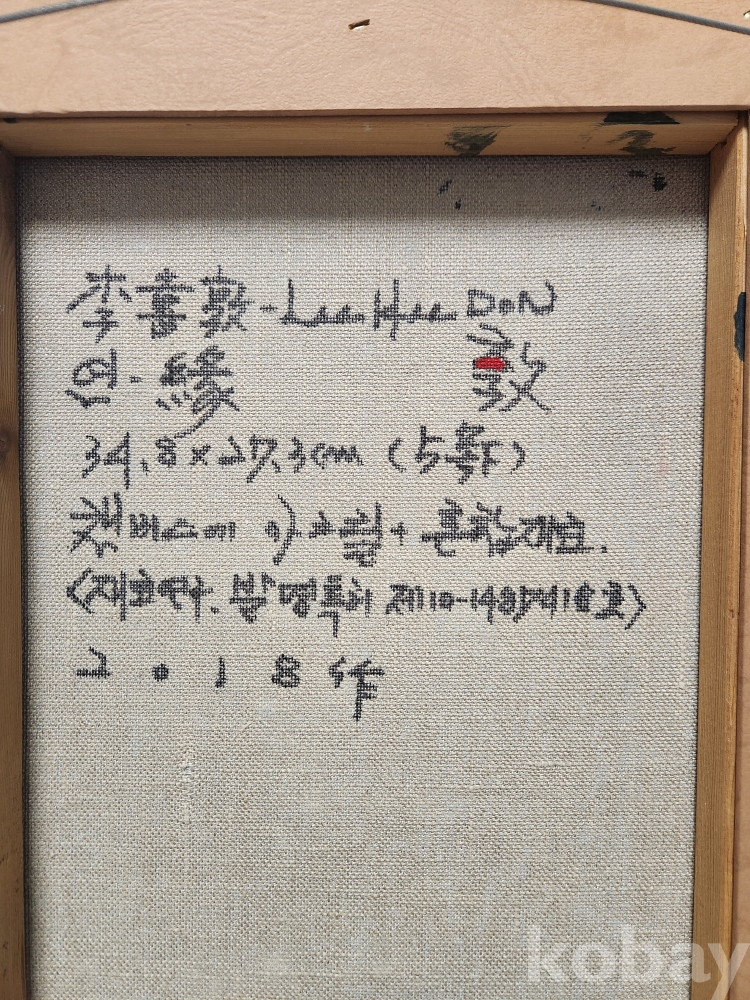 李喜敦-Lee Hee DoN
연. 緣 敦
34.8×27.3cm (5號作)
캔버스에 아크릴+혼합재료.
<재료학사. 발명특허 제10-
2018作
kobay